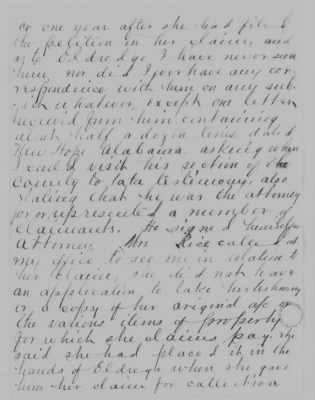 or one year after she had filed
the petition in her claim, and
as to Eldredge I have never seen
him, nor did I ever have any cor
respondence with him on any sub-
ject whatever, except one letter
received from him containing
about half a dozen lines dated
New Hope Alabama. asking when
I could visit his section of the
County to take testimony, also
stating that he was the attorney
for or represented a number of
claimants. He signed himself as
Attorney. Mrs Rice called at
my office to see me in relation to
her claim, she did not have
an application to take her testimony
or a copy of her original a/c or
the various items of property
for which she claims pay. She
said she had placed it in the
hands of Eldredge when she gave
him her claim for collection